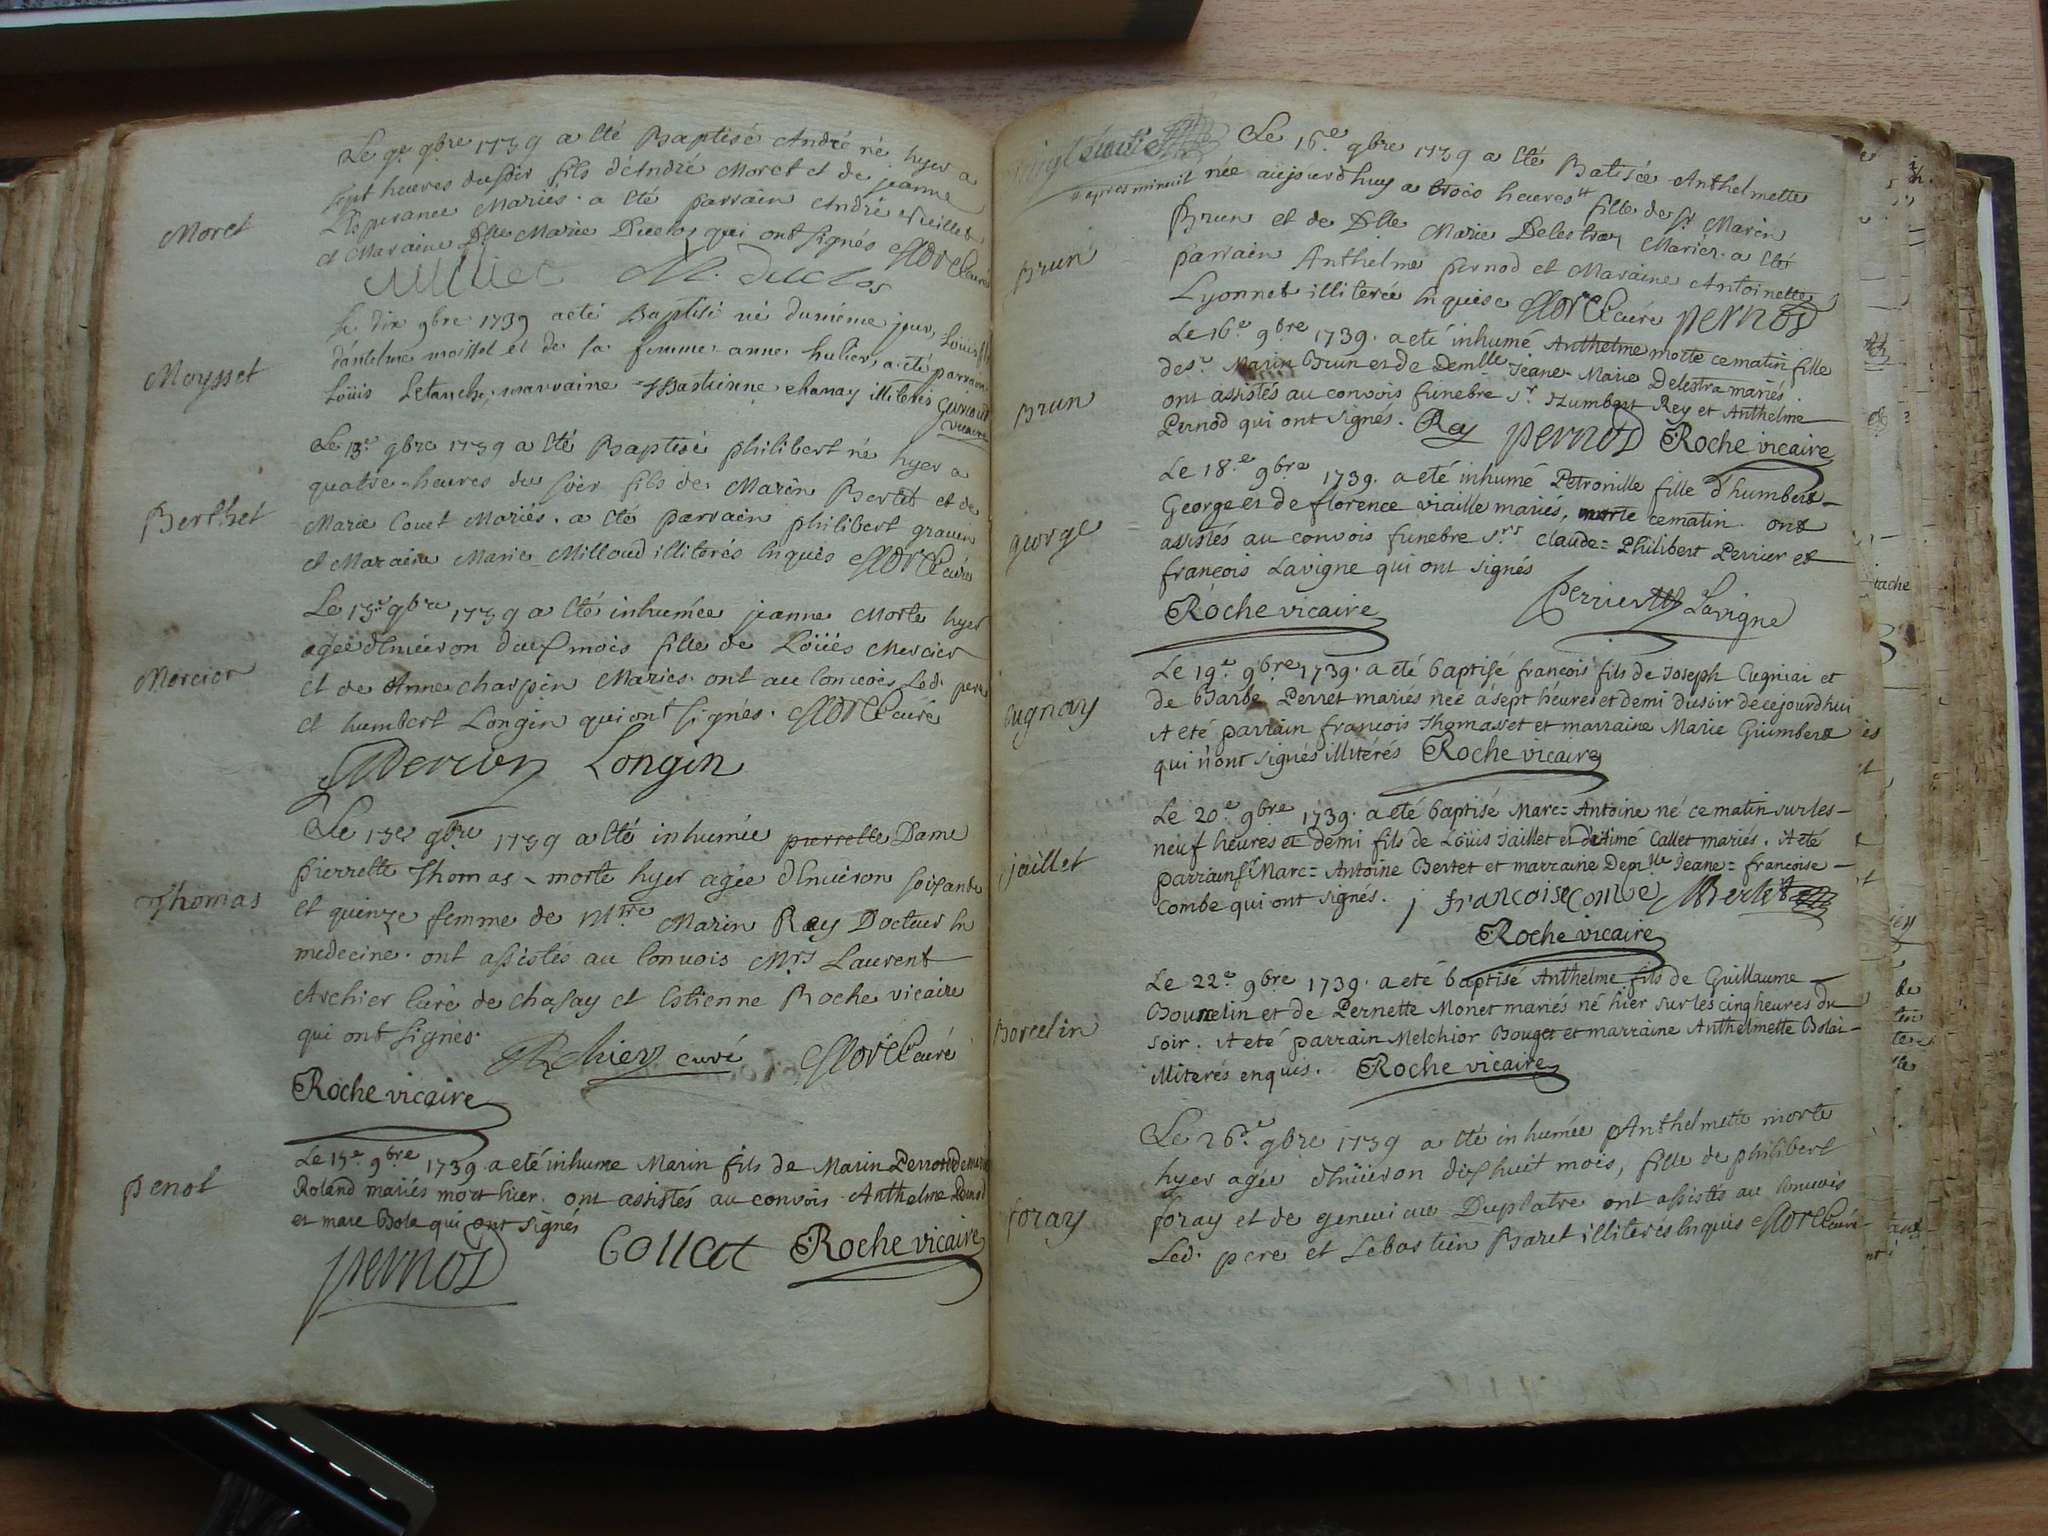 Le 9e 9bre 1739 a été Baptisé André né hyer a
sept heures du soir fils d'André Moret et de jeanne
Esperance Mariés. a été parrain André
Moret
et Maraine Dlle Marie Duclos qui ont signés curé
M. Duclos
Le dix 9bre 1739 a eté Baptisé né du même jour, Louis fils
d'antelme moissel et de sa femme anne hulier, a été parrain
Moysset
Loüis Letanche, marraine Bastienne chanay illiterés
vicaire
Le 13e 9bre 1739 a été Baptisé philibert né hyer a
quatre heures du soir fils de Marin Bertet et de
Berthet
Marie Couet Mariés. a été parrain philibert gravin
et Maraine Marie Milloud illiterés Enquis curé
Le 15e 9bre 1739 a été inhumée jeanne Morte hyer
agée d'Enuiron dix mois fille de Loüis Mercier
Mercier
et de Anne charpin Mariés. ont au Conuois Led. pere
et humbert Longin qui ont signés. curé
Mercier Longin
Le 15e 9bre 1739 a été inhumée pierrette Dame
pierrette Thomas morte hyer agée d'Enuiron soixante
Thomas
et quinze femme de Mtre Marin Rey Docteur En
medecine. ont assistés au Conuois Mrs Laurent
Archier Curé de chasay et Estienne Roche vicaire
qui ont signés.
Archier curé curé
Roche vicaire
Le 15e 9bre 1739 a eté inhume Marin fils de Marin
penot
Roland mariés mort hier. ont assistés au convois Anthelme Pernod
et marc Bola qui ont signés
pernod Collet Roche vicaire
Le 16e 9bre 1739 a été Batisée Anthelmette
# apres minuit née aüjourd'huy a trois heures # fille de sr Marin
Brun et de Dlle Marie Delestraz Mariez. a été
Brun
parrain Anthelme pernod et Maraine Antoinette
Lyonnet illiterée Enquise curé pernod
Le 16e 9bre 1739. a eté inhumé Anthelme morte ce matin fille
de sr Marin Brun et de Demlle Jeane-Marie Delestra mariés
Brun
ont assistés au convois funebre sr Humbert Rey et Anthelme
Pernod qui ont signés. Rey pernod Roche vicaire
Le 18e 9bre 1739. a eté inhumé Petronille fille d'humbert
George et de florence viaille mariés, morte ce matin. ont
george
assistés au convois funebre srs Claude=Philibert Perrier et
françois Lavigne qui ont signés
Roche vicaire Perrier Lavigne
Le 19e 9bre 1739. a eté baptisé françois fils de Joseph Cugniai et
de Barbe Perret mariés née à sept héures et demi du soir de cejourdhui
Cugnay
A eté parrain françois Thomasset et marraine Marie Guimbert
qui n'ont signés illiterés Roche vicaire
Le 20e 9bre 1739. a eté baptisé Marc=Antoine né ce matin sur les
neuf heures et demi fils de Loüis Jaillet et d'Aimé Callet mariés. A eté
jaillet
parrain sr Marc=Antoine Bertet et marraine Demlle Jeane=françoise
Combe qui ont signés. j françoise combe Bertet
Roche vicaire
Le 22e 9bre 1739. a eté baptisé Anthelme fils de Guillaume
et de Pernette Monet mariés né hier sur les cinq heures du
Borcelin
soir. A eté parrain Melchior Bouget et marraine Anthelmette Bolai
illiterés enquis. Roche vicaire
Le 26e 9bre 1739 a été inhumée Anthelmette morte
hyer agée d'Enüiron dix huit mois, fille de philibert
foray
foray et de geneuieue Duplatre ont assistés au Conuois
Led. pere et Sebastien Baret illiterés Enquis curé